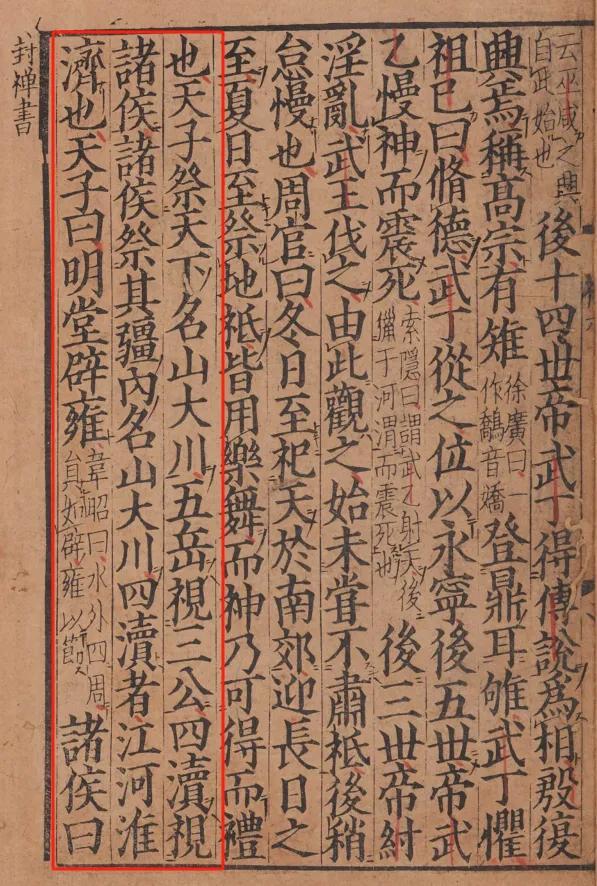 云巫咸之興自此始也後十四世帝武丁得傅說爲相殷復
興焉稱髙宗有雉徐廣曰一作鷮音嬌登鼎耳雊武丁懼
祖已曰脩德武丁從之位以永寜後五世帝武
乙慢神而震死索隱曰謂武乙射天後獵于河渭而震死也後三世帝紂
淫亂武王伐之由此觀之始未甞不肅祗後稍
怠慢也周官曰冬日至祀天於南郊迎長日之
至夏日至祭地祇皆用樂舞而神乃可得而禮
也天子祭天下名山大川五岳視三公四瀆視
諸侯諸侯祭其疆內名山大川四瀆者江河淮
濟也天子曰明堂辟雍韋昭曰水外四周員如辟雍以節諸侯曰
封禅書